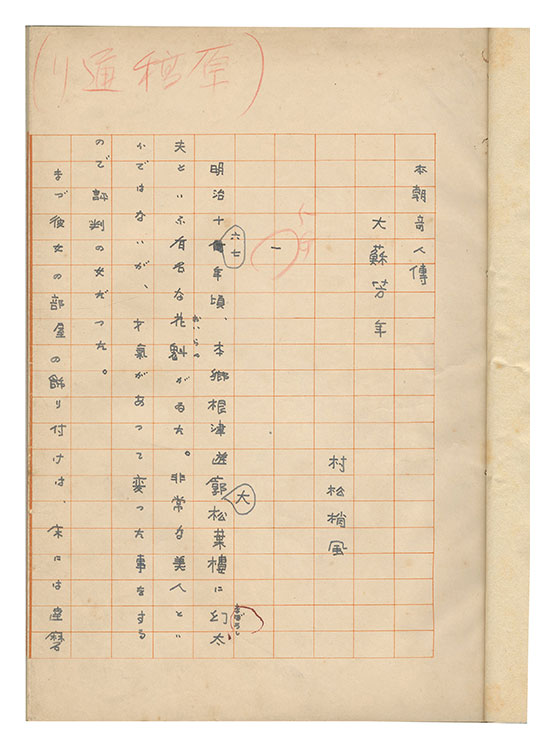 (原稿通り)
本朝奇人傳
大蘇芳年
村松梢風
一
明治十六七年頃、本郷根津遊廓大松葉樓に幻太
まぼろし
夫といふ有名な花魁がゐた。非常な美人とい
おいらん
ふではないが、才氣があつて変つた事をする
ので評判の女だつた。
まづ彼女の部屋の飾り付けは、床には達磨